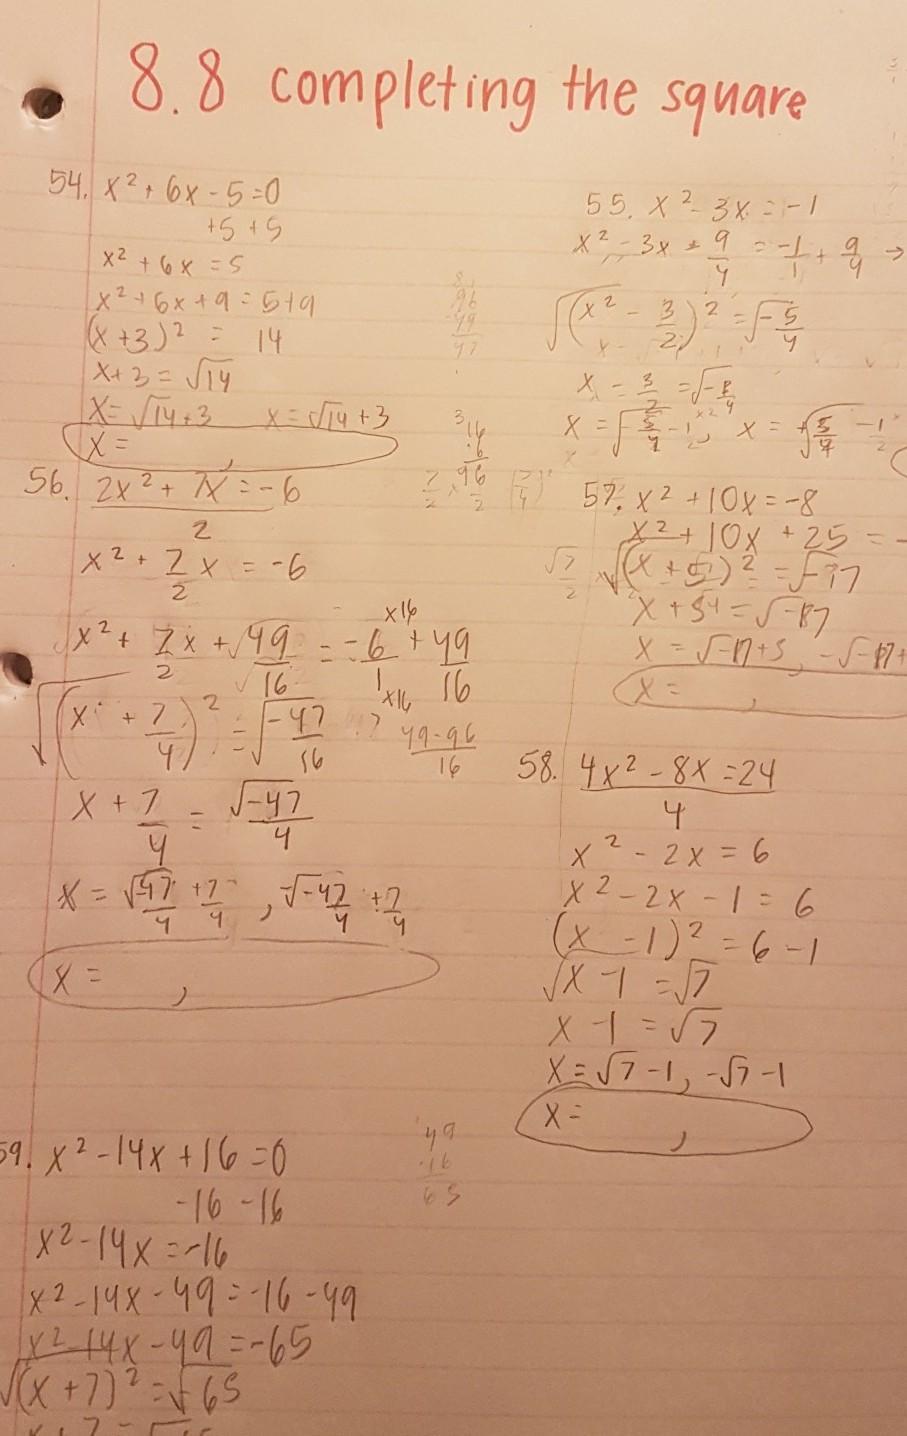 8.8 completing the square
54. x² + 6x - 5 = 0
+5 +5
x² + 6x = 5
x² + 6x + 9 = 5+9
(x+3)² = 14
x+3 = √14
x = √14+3 x = √14+3
x = ,
55. x² - 3x = -1
x² - 3x + 9/4 = -1/1 + 9/4 →
√(x² - 3/2)² = √-5/4
x - 3/2
56. 2x² + 7x = -6
2
x² + 7/2 x = -6
x² + 7/2 x + √49/16 = -6/1 + 49/16
x16
x16
√(x + 7/4)² = √-47/16 ?
49-96/16
x + 7/4 = √-47/4
x = √-47/4 + 7/4 , √-47/4 + 7/4
x = ,
3
16
96
57. x² + 10x = -8
x² + 10x + 25 = -
√(x + 5)² = √-17
x =
x = ,
58. 4x² - 8x = 24
4
x² - 2x = 6
x² - 2x - 1 = 6
(x - 1)² = 6 - 1
√x - 1 = √7
x - 1 = √7
x = √7 - 1, -√7 - 1
x = ,
59. x² - 14x + 16 = 0
-16 -16
x² - 14x = -16
x² - 14x - 49 = -16 - 49
x² - 14x - 49 = -65
√(x + 7)² = √-65
49
16
65